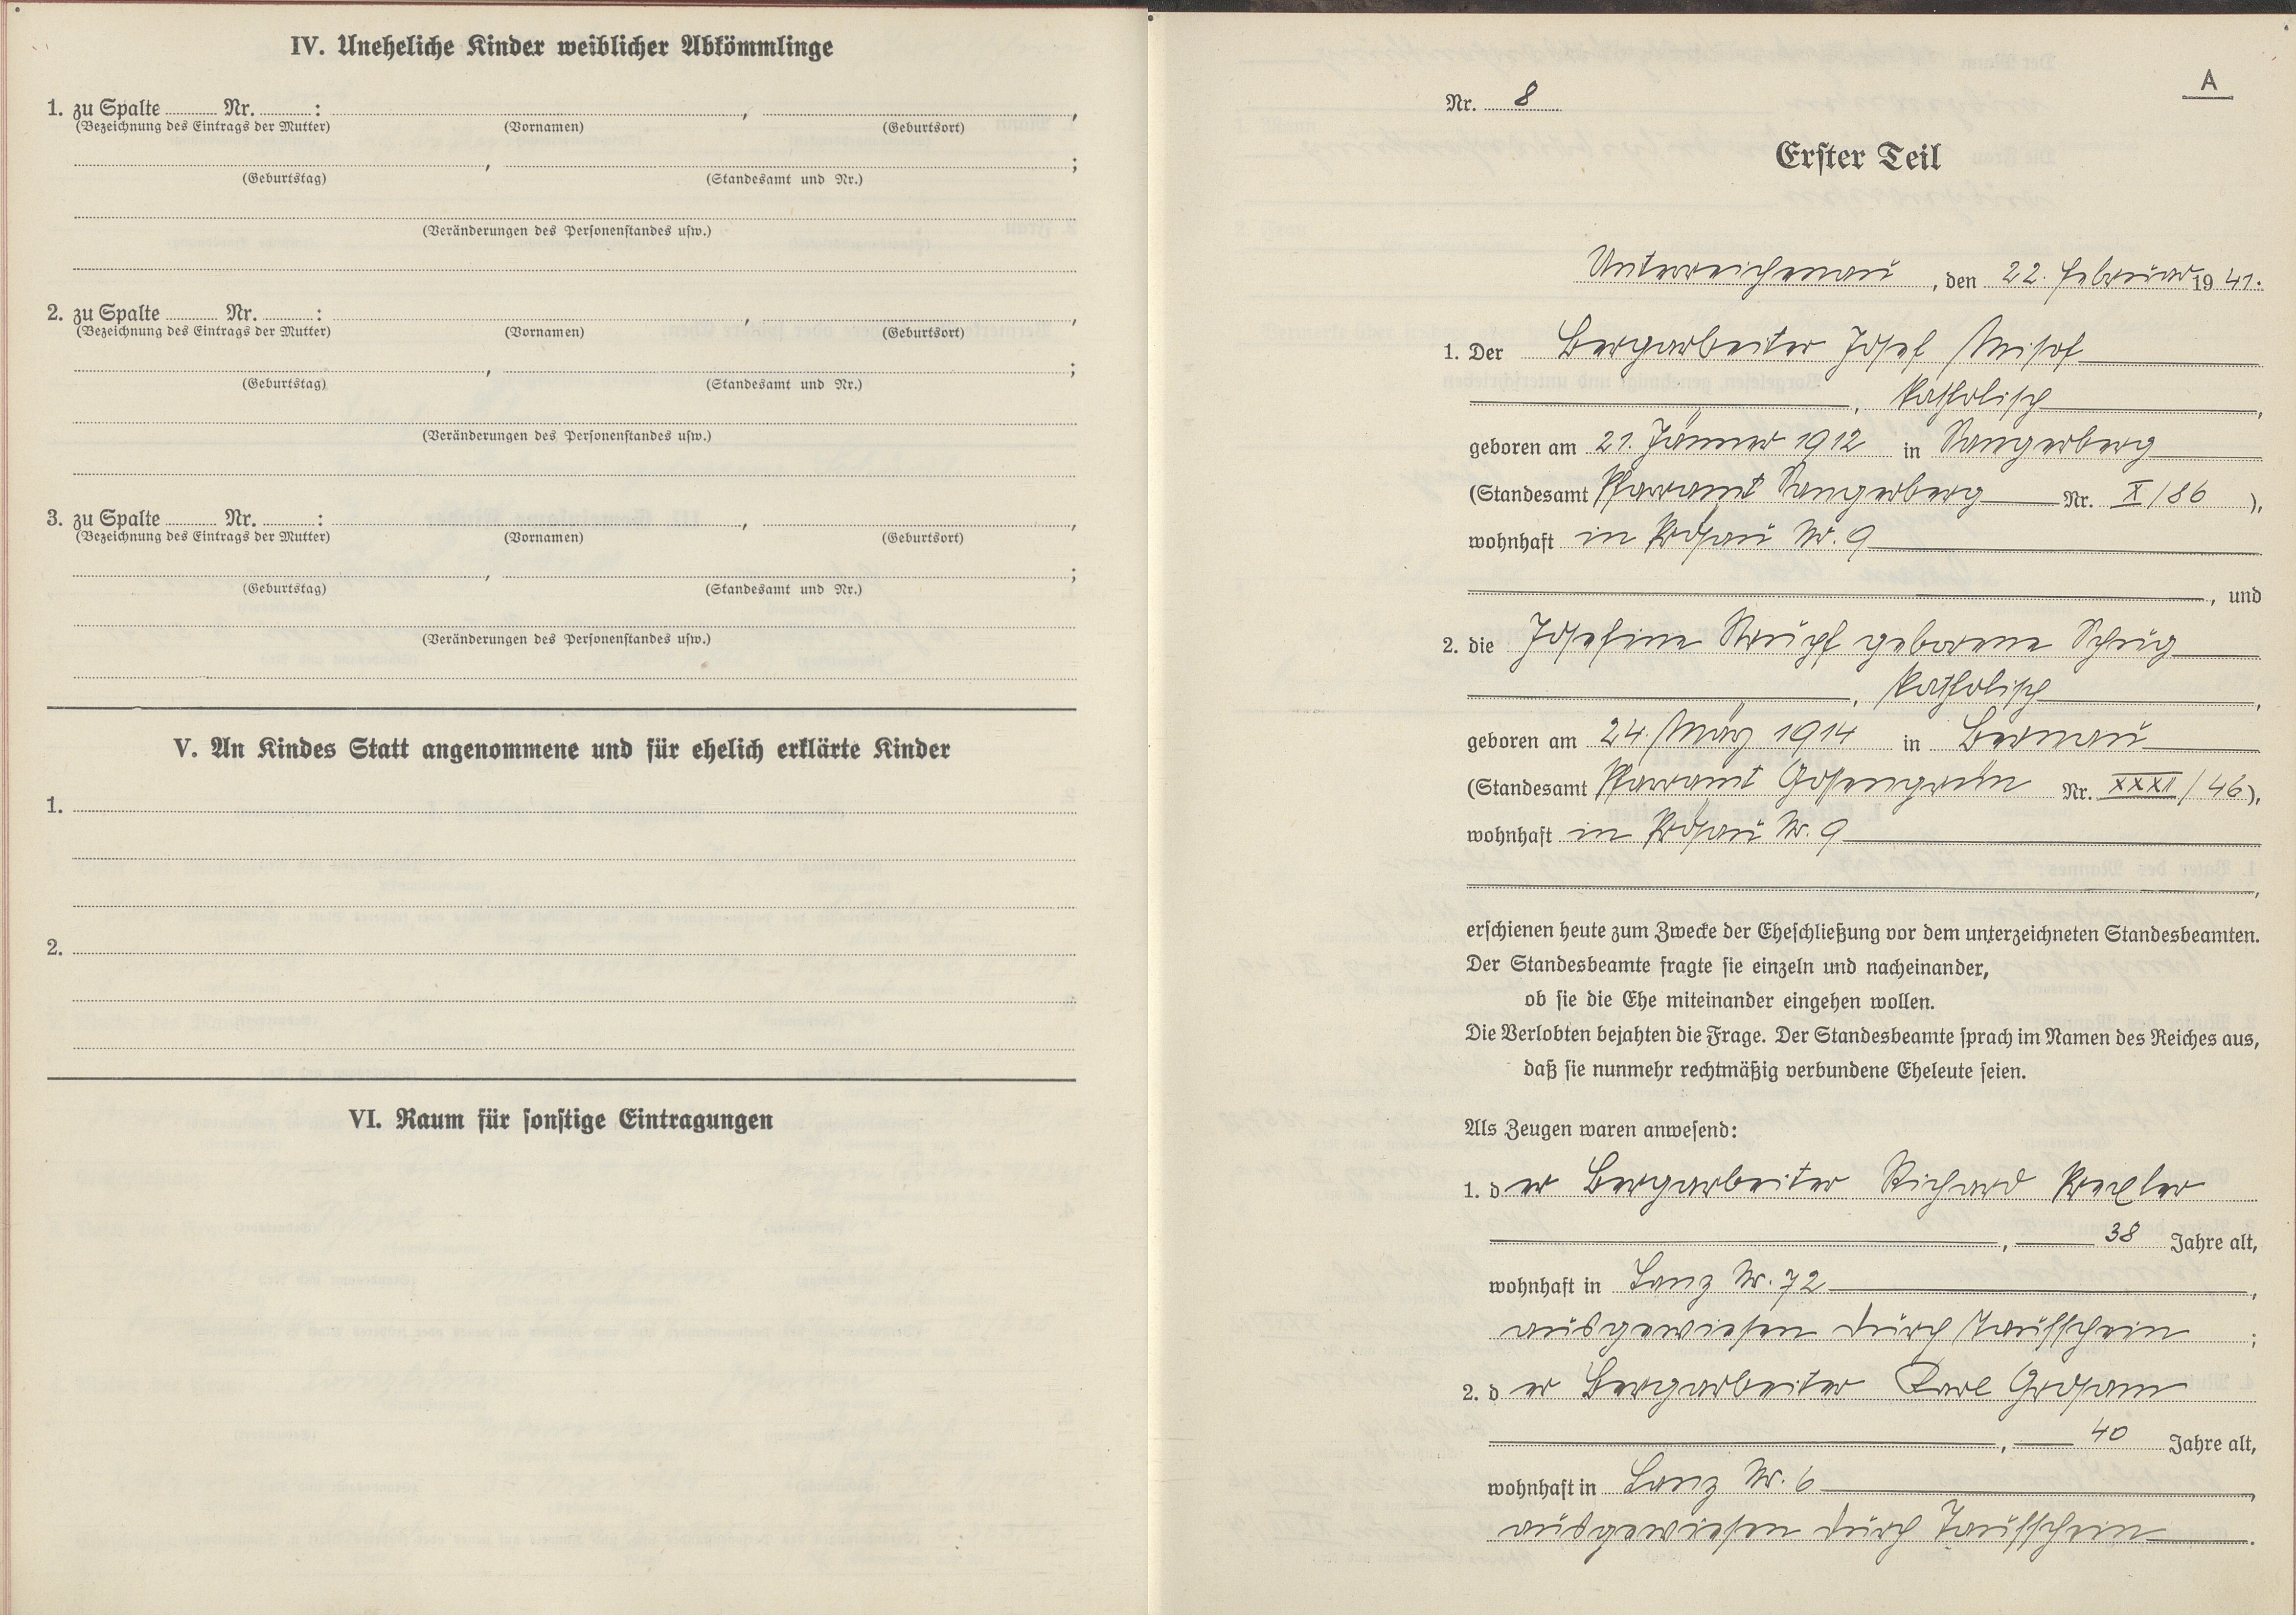 IV. Uneheliche Kinder weiblicher Abkömmlinge
1. zu Spalte ........ Nr. ........ : ........ , ........ ,
(Bezeichnung des Eintrags der Mutter) (Vornamen) (Geburtsort)
........ , ........ ;
(Geburtstag) (Standesamt und Nr.)
(Veränderungen des Personenstandes usw.)
2. zu Spalte ........ Nr. ........ : ........ , ........ ,
(Bezeichnung des Eintrags der Mutter) (Vornamen) (Geburtsort)
........ , ........ ;
(Geburtstag) (Standesamt und Nr.)
(Veränderungen des Personenstandes usw.)
3. zu Spalte ........ Nr. ........ : ........ , ........ ,
(Bezeichnung des Eintrags der Mutter) (Vornamen) (Geburtsort)
........ , ........ ;
(Geburtstag) (Standesamt und Nr.)
(Veränderungen des Personenstandes usw.)
V. An Kindes Statt angenommene und für ehelich erklärte Kinder
1.
2.
VI. Raum für sonstige Eintragungen
A
Nr. 8
Erster Teil
Unterreichenau, den 22. Februar 1941.
1. Der Bergarbeiter Josef
, katholisch,
geboren am 21. Jänner 1912 in Sangerberg
(Standesamt Pfarramt Sangerberg Nr. X/86),
wohnhaft in Prösau Nr. 9
, und
2. die Josefine geborene Schug
, katholisch,
geboren am 24. März 1914 in Bernau
(Standesamt Pfarramt Gossengrün Nr. XXXII/46),
wohnhaft in Prösau Nr. 9
,
erschienen heute zum Zwecke der Eheschließung vor dem unterzeichneten Standesbeamten.
Der Standesbeamte fragte sie einzeln und nacheinander,
ob sie die Ehe miteinander eingehen wollen.
Die Verlobten bejahten die Frage. Der Standesbeamte sprach im Namen des Reiches aus,
daß sie nunmehr rechtmäßig verbundene Eheleute seien.
Als Zeugen waren anwesend:
1. der Bergarbeiter Richard Drexler
, 38 Jahre alt,
wohnhaft in Lanz Nr. 72,
ausgewiesen durch Taufschein;
2. der Bergarbeiter Karl Grosam
, 40 Jahre alt,
wohnhaft in Lanz Nr. 6,
ausgewiesen durch Taufschein.